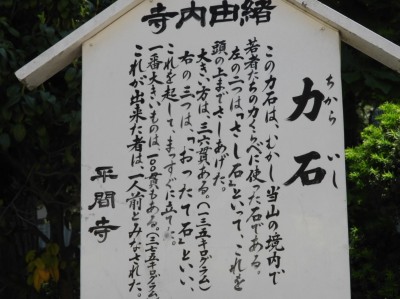 寺内由緒
力石
ちから いし
この力石は、むかし当山の境内で
若者たちの力くらべに使った石である。
左の二つは「さし石」といって、これを
頭の上までさしあげた。
大きい方は、三六貫ある。(一三五キログラム)
右の三つは、「おったて石」といい、
これを起して、まっすぐに立てた。
一番大きいものは、一〇〇貫もある。(三七五キログラム)
これが出来た者は、一人前とみなされた。
平間寺